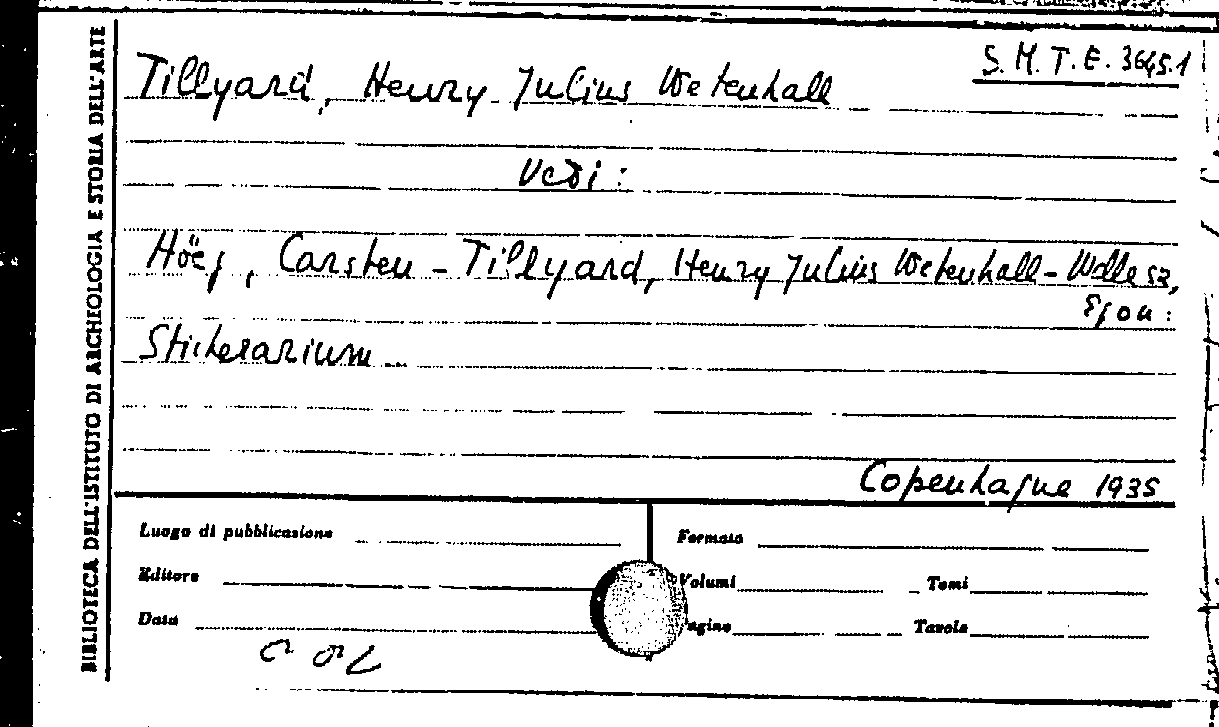 S. M. T. E. 3645.1
Tillyard, Henry Julius Wetenhall
Vedi:
Höeg, Carsten - Tillyard, Henry Julius Wetenhall - Wellesz,
Egon:
Sticherarium...
Copenhague 1935
BIBLIOTECA DELL'ISTITUTO DI ARCHEOLOGIA E STORIA DELL'ARTE
Luogo di pubblicazione
Formato
Editore
Volumi
Tomi
Data
Tavole